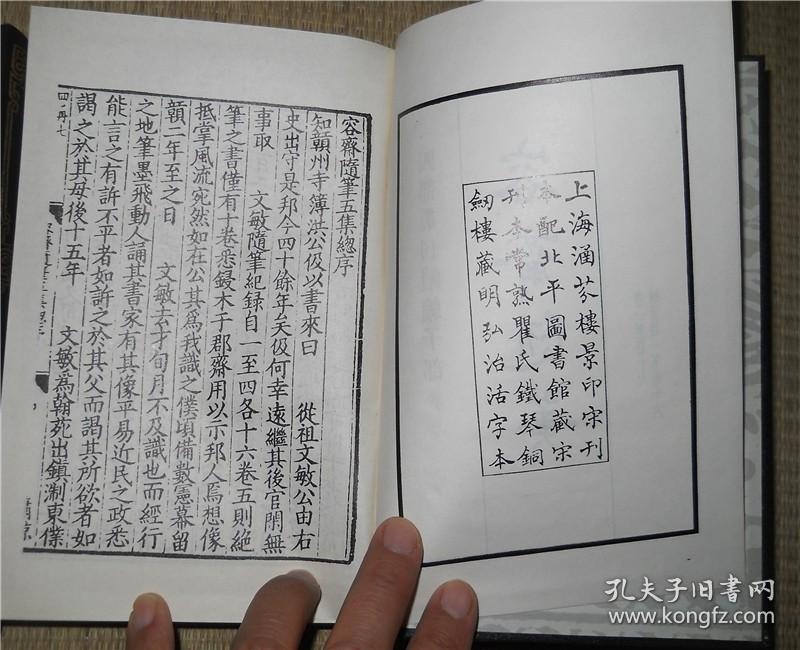 上海涵芬樓景印宋刊
本配北平圖書館藏宋
刊本常熟瞿氏鐵琴銅
劒樓藏明弘治活字本
容齋隨筆五集總序
知贛州寺簿洪公伋以書來曰 從祖文敏公由右
史出守是邦今四十餘年矣伋何幸遠繼其後官閑無
事取 文敏隨筆紀録自一至四各十六卷五則絶
筆之書僅有十卷悉鋟木于郡齋用以示邦人焉想像
抵掌風流宛然如在公其爲我識之僕頃備數憲幕留
贛二年至之日 文敏去才旬月不及識也而經行
之地筆墨飛動人誦其書家有其像平易近民之政悉
能言之有訴不平者如訴之於其父而謁其所欲者如
謁之於其母後十五年 文敏爲翰苑出鎮淛東僕
四·冊七
孔夫子旧書网
www.kongfz.com